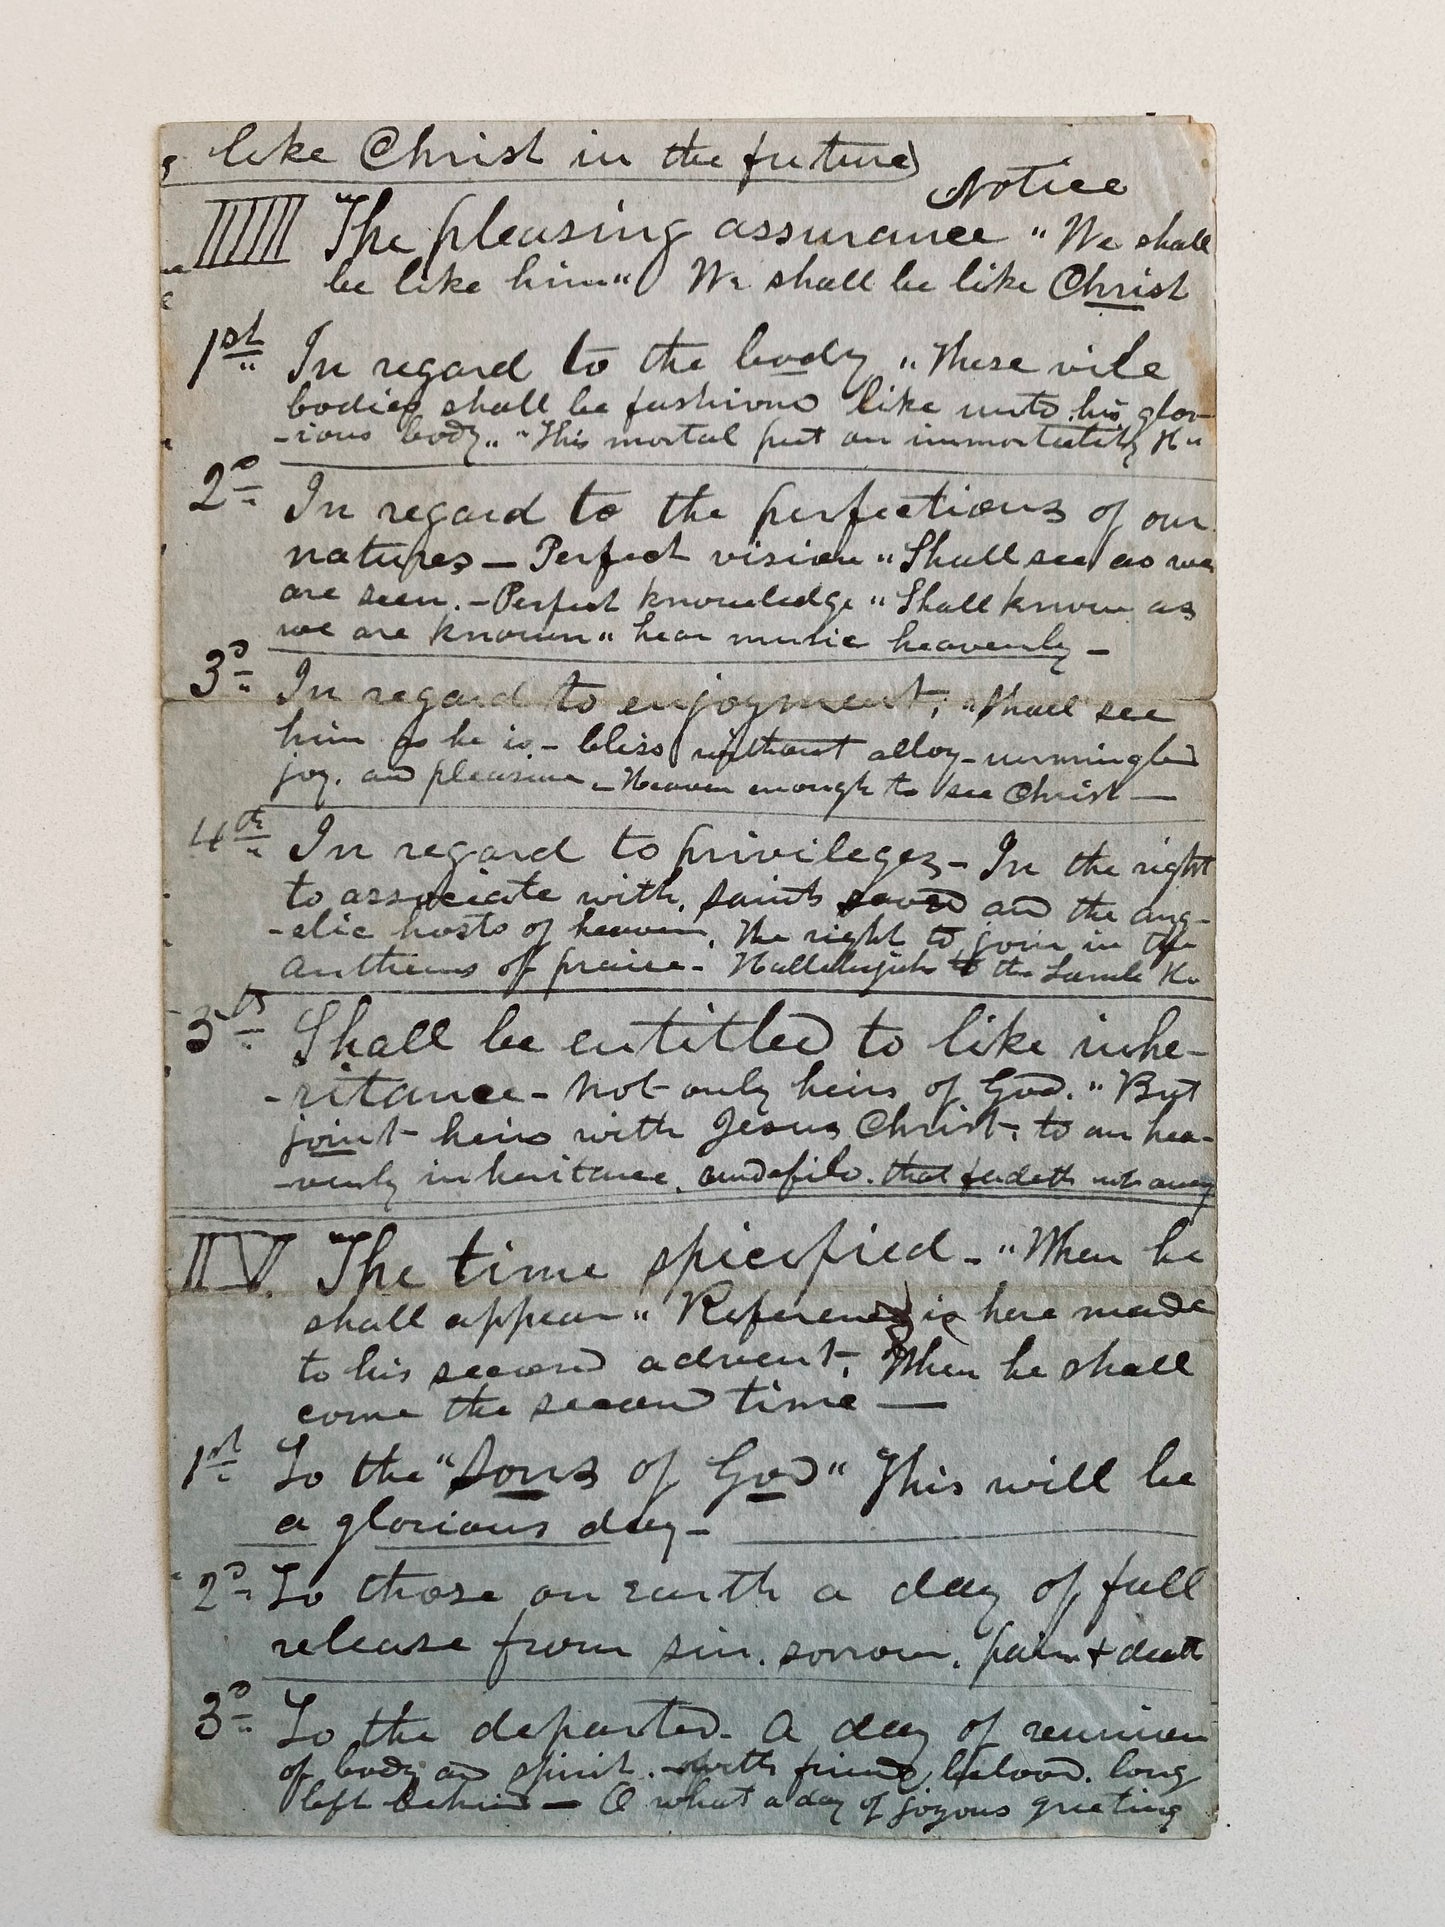 like Christ in the future)
Notice
IIIII The pleasing assurance "We shall
be like him" We shall be like Christ
1st In regard to the body "These vile
bodies shall be fashiond like unto his glor-
-ious body" "This mortal put on immortality &c
2d In regard to the perfections of our
natures - Perfect vision "Shall see as we
are seen. - Perfect knowledge "Shall know as
we are known" hear music heavenly -
3d In regard to enjoyment, "Shall see
him as he is - bliss without alloy - unmingled
joy. and pleasure - Heaven enough to see Christ -
4th In regard to privileges - In the right
to associate with, saints saved and the ang-
-elic hosts of heaven, The right to join in the
anthems of praise - Hallelujah to the Lamb &c
5th Shall be entitled to like inhe-
-ritance - not only heirs of God." But
joint heirs with Jesus Christ, to an hea-
-venly inheritance, undefild. that fadeth not away
IV. The time spicified - "When he
shall appear" Reference is here made
to his second advent, When he shall
come the second time -
1st To the "Sons of God" This will be
a glorious day -
2d To those on earth a day of full
release from sin. sorrow. pain + death
3d To the departed. A day of reunion
of body and spirit. with friends beloved. long
left behind - O what a day of joyous greeting